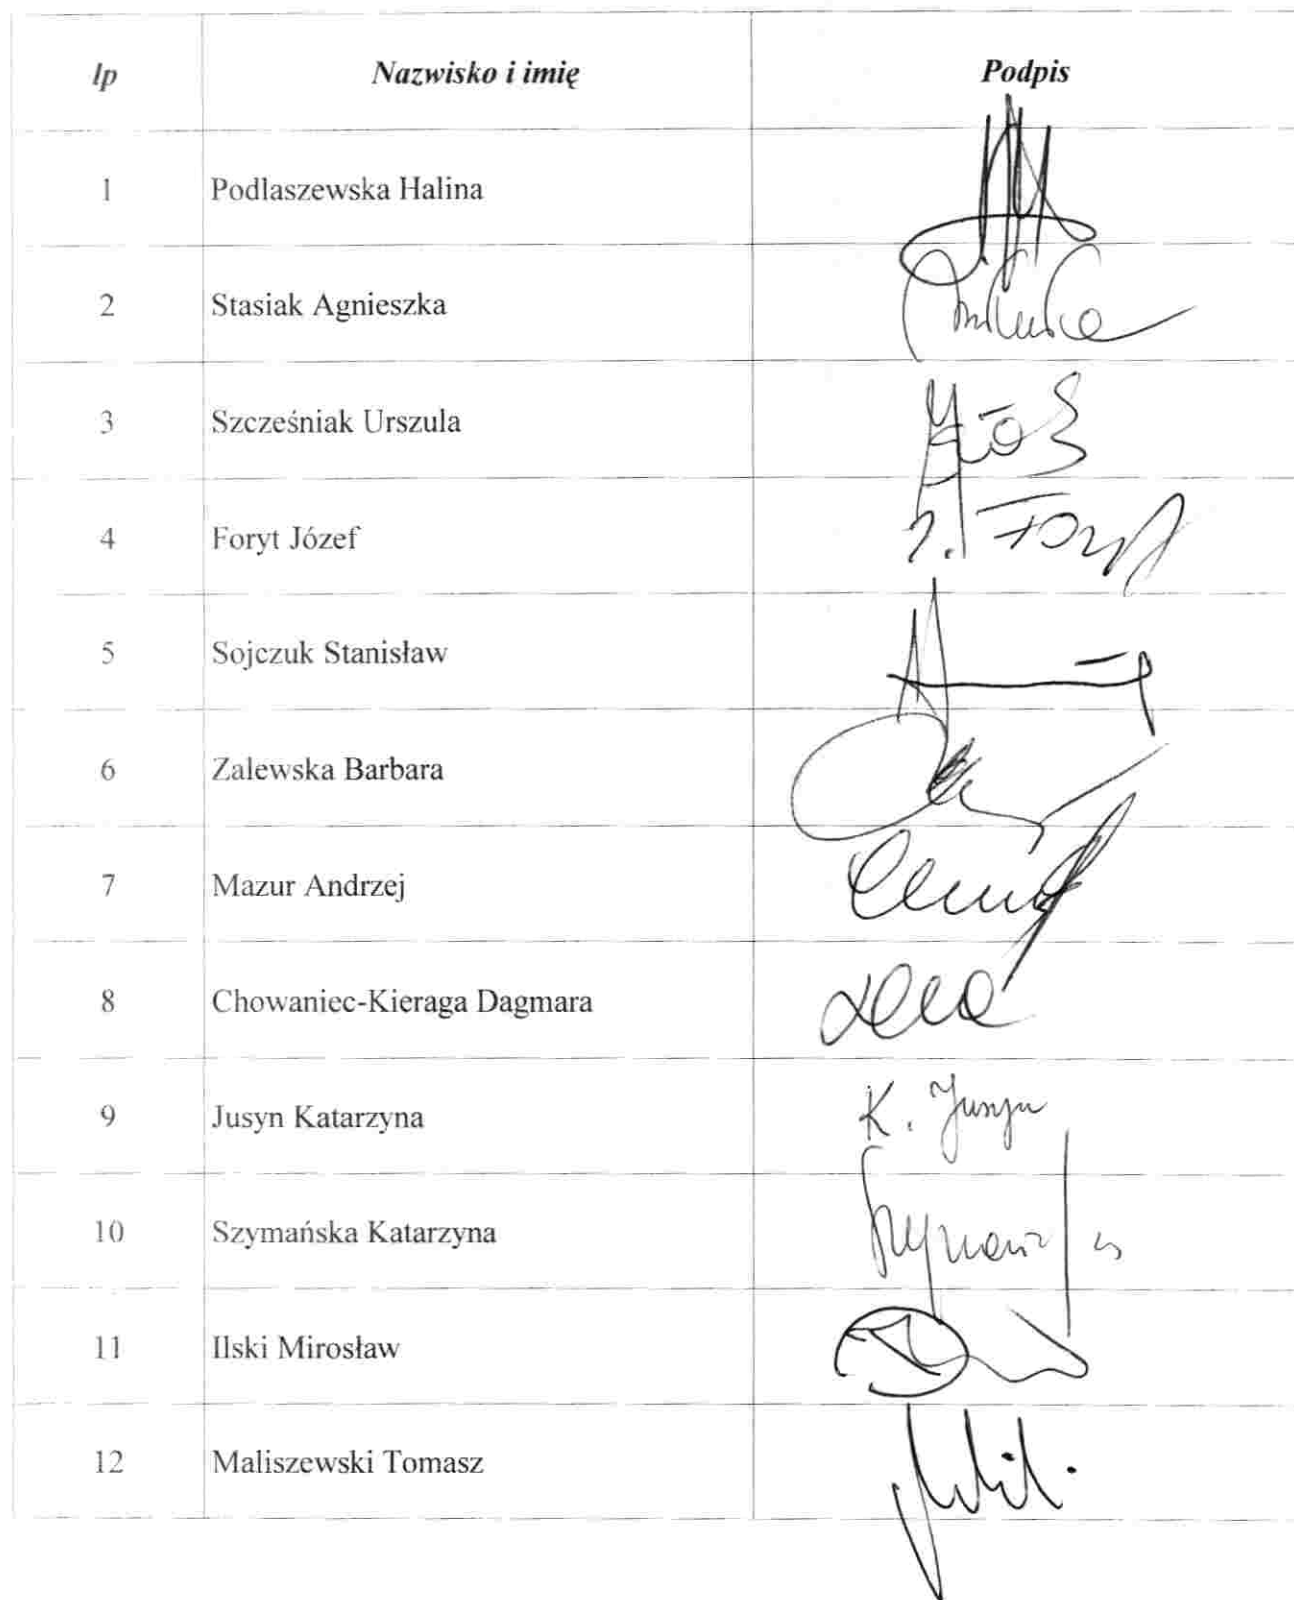 lp Nazwisko i imię Podpis
1 Podlaszewska Halina
2 Stasiak Agnieszka
3 Szcześniak Urszula
4 Foryt Józef J. Foryt
5 Sojczuk Stanisław
6 Zalewska Barbara
7 Mazur Andrzej
8 Chowaniec-Kieraga Dagmara
9 Jusyn Katarzyna K. Jusyn
10 Szymańska Katarzyna
11 Ilski Mirosław
12 Maliszewski Tomasz